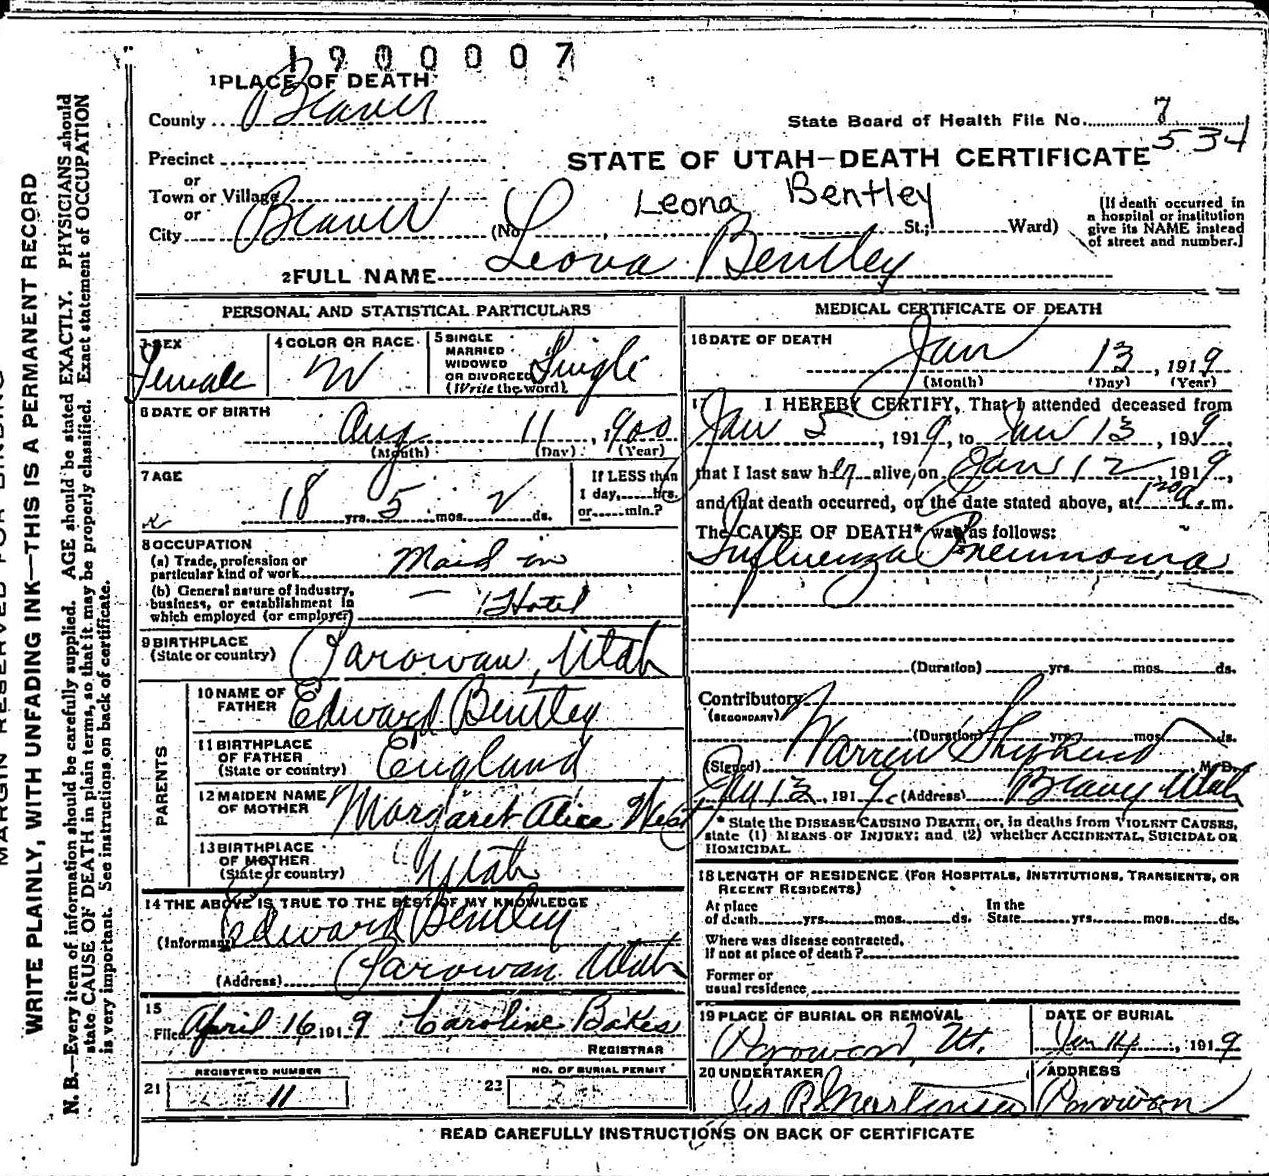 1900007
1 PLACE OF DEATH
County Beaver
State Board of Health File No. 7
534
Precinct
or
STATE OF UTAH—DEATH CERTIFICATE
Town or Village
or
City Beaver (No. , St.; Ward)
Leona Bentley
(If death occurred in
a hospital or institution
give its NAME instead
of street and number.)
2 FULL NAME Leona Bentley
PERSONAL AND STATISTICAL PARTICULARS
3 SEX
Female
4 COLOR OR RACE
W
5 SINGLE
MARRIED
WIDOWED
OR DIVORCED
(Write the word)
Single
6 DATE OF BIRTH
Aug 11, 1900
(Month) (Day) (Year)
7 AGE
18 yrs. 5 mos. 2 ds.
If LESS than
1 day, hrs.
or min.?
8 OCCUPATION
(a) Trade, profession or
particular kind of work Maid in
(b) General nature of industry,
business, or establishment in
which employed (or employer) Hotel
9 BIRTHPLACE
(State or country) Parowan, Utah
PARENTS
10 NAME OF
FATHER Edward Bentley
11 BIRTHPLACE
OF FATHER
(State or country) England
12 MAIDEN NAME
OF MOTHER Margaret Alice West
13 BIRTHPLACE
OF MOTHER
(State or country) Utah
14 THE ABOVE IS TRUE TO THE BEST OF MY KNOWLEDGE
(Informant) Edward Bentley
(Address) Parowan Utah
15
Filed April 16 1919 Caroline Bakes
REGISTRAR
REGISTERED NUMBER
21 11
NO. OF BURIAL PERMIT
22
MEDICAL CERTIFICATE OF DEATH
16 DATE OF DEATH
Jan 13, 1919
(Month) (Day) (Year)
17 I HEREBY CERTIFY, That I attended deceased from
Jan 5, 1919, to Jan 13, 1919,
that I last saw her alive on Jan 12 1919,
and that death occurred, on the date stated above, at m.
The CAUSE OF DEATH* was as follows:
Influenza Pneumonia
(Duration) yrs. mos. ds.
Contributory
(SECONDARY)
(Duration) yrs. mos. ds.
(Signed) Warren Shepherd M.D.
Jan 13, 1919. (Address) Beaver Utah
* State the DISEASE CAUSING DEATH, or, in deaths from VIOLENT CAUSES,
state (1) MEANS OF INJURY; and (2) whether ACCIDENTAL, SUICIDAL OR
HOMICIDAL.
18 LENGTH OF RESIDENCE (FOR HOSPITALS, INSTITUTIONS, TRANSIENTS, OR
RECENT RESIDENTS)
At place
of death yrs. mos. ds.
In the
State yrs. mos. ds.
Where was disease contracted,
if not at place of death?
Former or
usual residence
19 PLACE OF BURIAL OR REMOVAL
Parowan, Ut.
DATE OF BURIAL
Jan 14, 1919
20 UNDERTAKER
ADDRESS
Parowan
READ CAREFULLY INSTRUCTIONS ON BACK OF CERTIFICATE
WRITE PLAINLY, WITH UNFADING INK—THIS IS A PERMANENT RECORD
N. B.—Every item of information should be carefully supplied. AGE should be stated EXACTLY. PHYSICIANS should
state CAUSE OF DEATH in plain terms, so that it may be properly classified. Exact statement of OCCUPATION
is very important. See instructions on back of certificate.